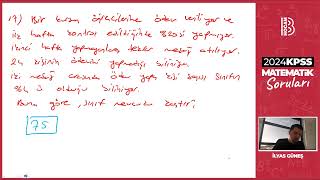 19) Bir kurum öğrencilerine ödev veriliyor ve
ilk hafta kontrol edildiğinde %20si yapmıyor.
ikinci hafta yapmayanlara tekrar mesaj atılıyor.
24 kişinin ödevini yapmadığı biliniyor.
iki mesaj arasında ödev yapan kişi sayısı sınıfın
olduğu biliniyor.
Buna göre, sınıf mevcudu kaçtır?
75
B
2024 KPSS
MATEMATİK
Soruları
İLYAS GÜNEŞ